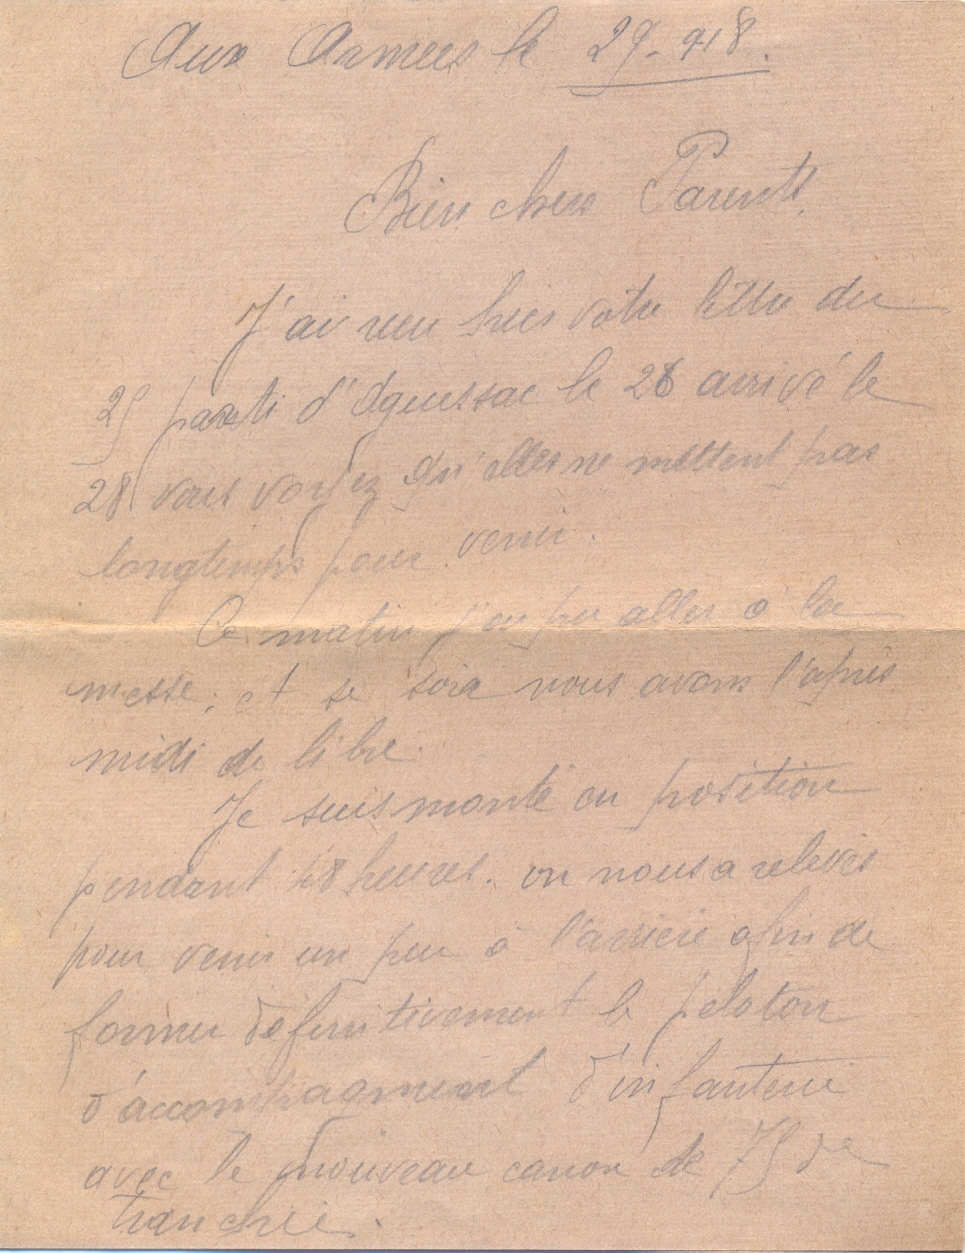 Aux Armées le 29-9-18.
Bien chers Parents.
J'ai reçu hier votre lettre du
25 parti d'Aguessac le 26 arrivé le
28 vous voyez qu'elles ne mettent pas
longtemps pour venir.
Ce matin j'ai pu aller à la
messe, et se soir nous avons l'après
midi de libre.
Je suis monté en position
pendant 48 heures. on nous a relevés
pour venir un peu à l'arrière afin de
former définitivement le peloton
d'accompagnement d'infanterie
avec le nouveau canon de 75 de
tranchée.